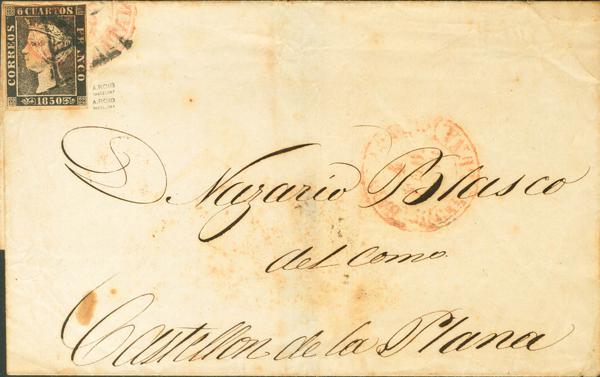 6 CUARTOS
CORREOS
FRANCO
1850
A.ROIG
A.ROIG
D. Nazario Blasco
del comº
Castellon de la Plana